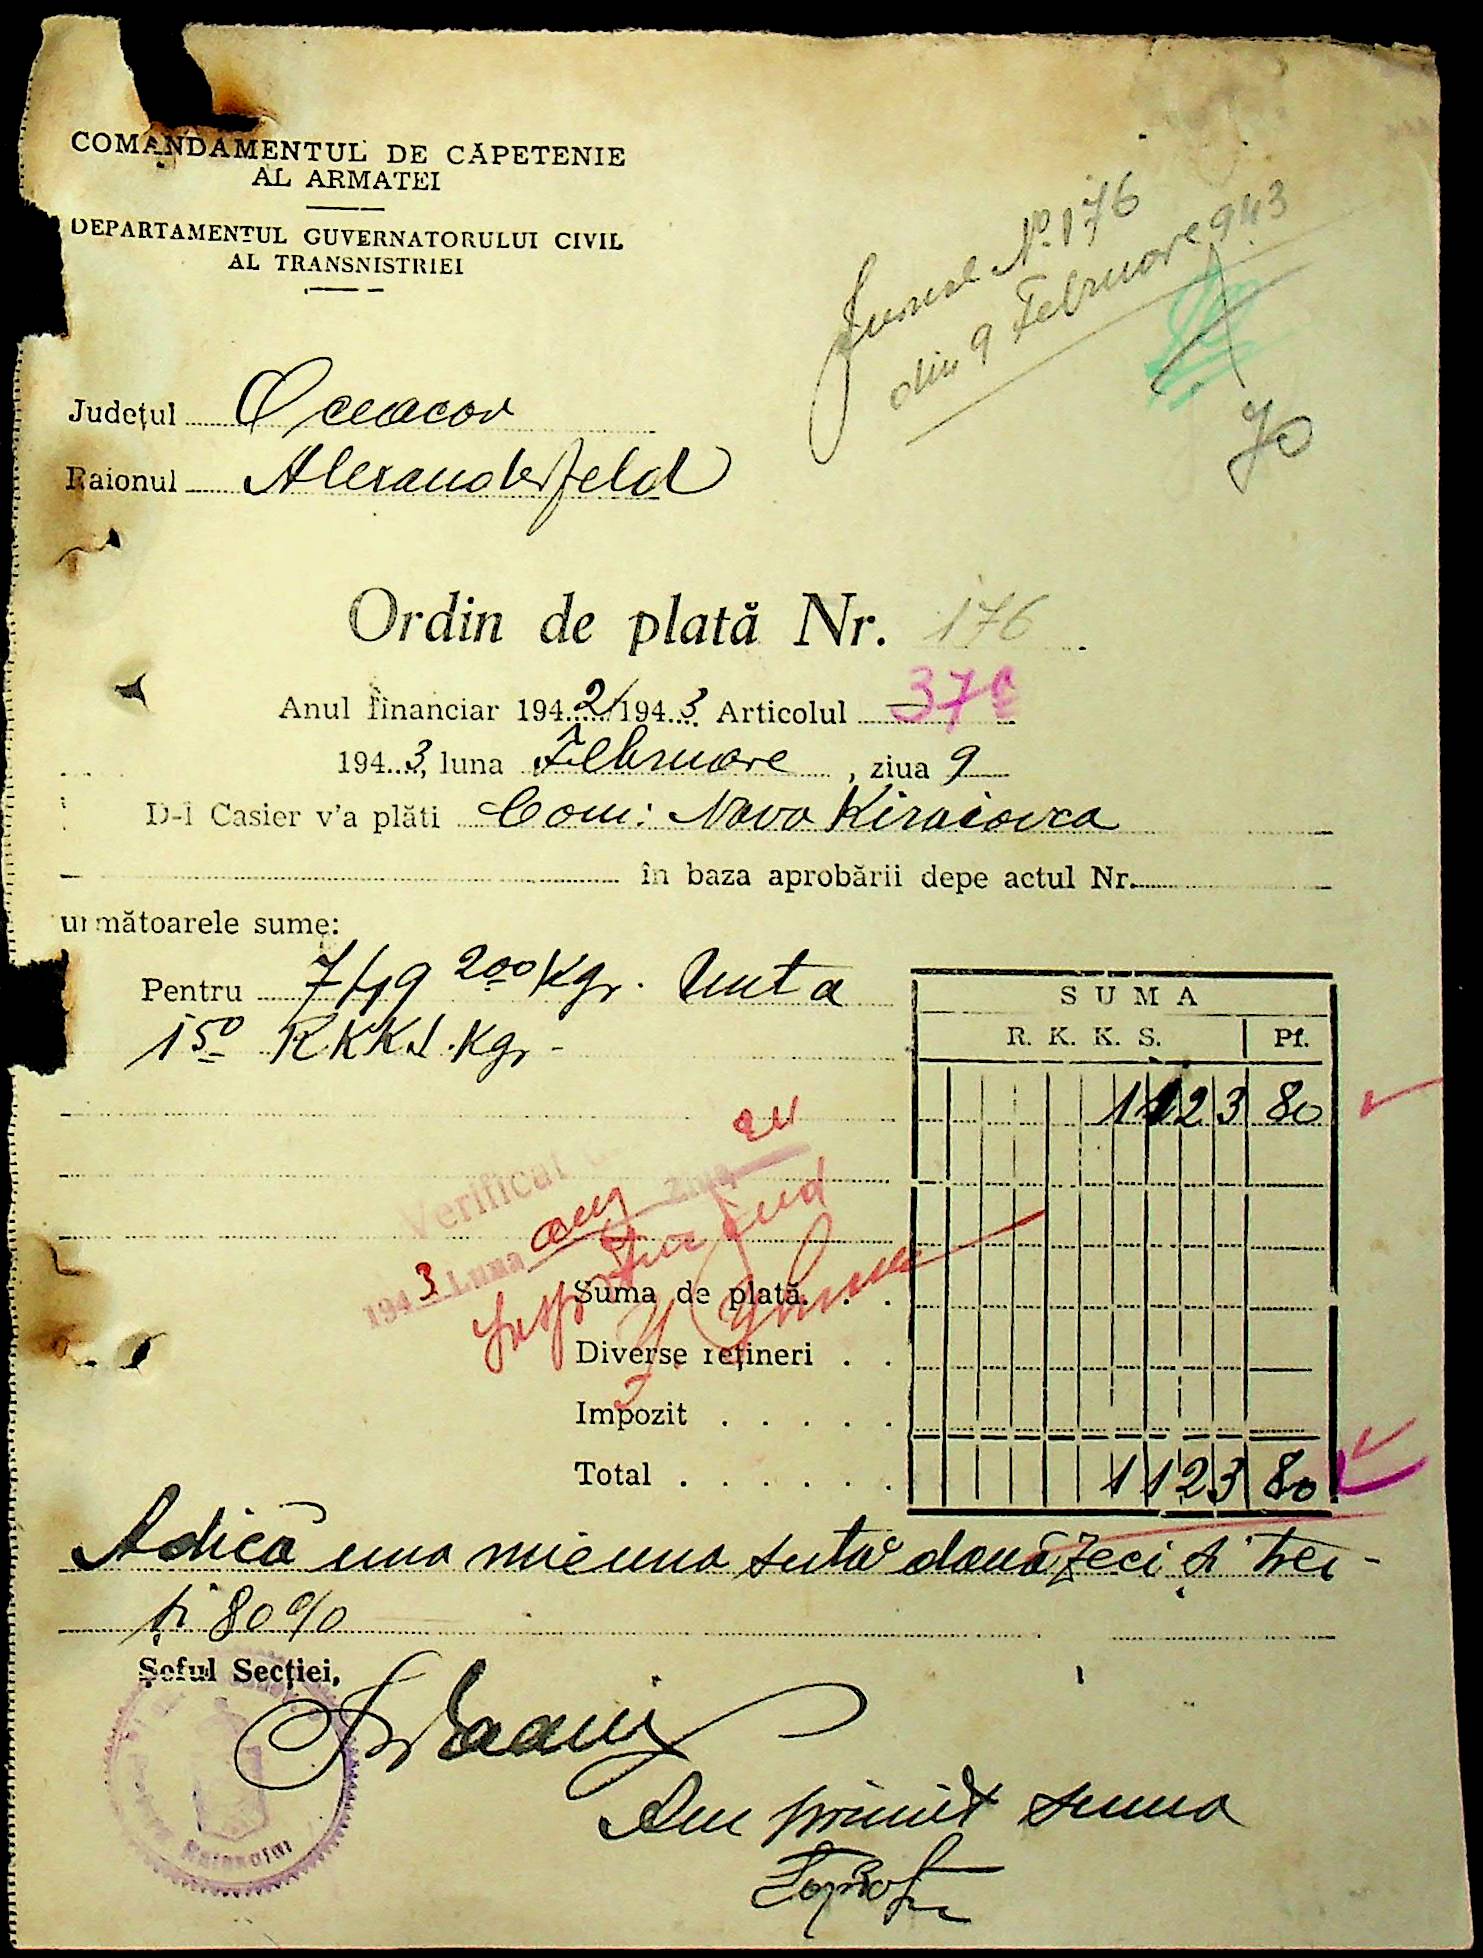 COMANDAMENTUL DE CĂPETENIE
AL ARMATEI
DEPARTAMENTUL GUVERNATORULUI CIVIL
AL TRANSNISTRIEI
Jurnal No. 176
din 9 Februore 943
Județul Oceacov
Raionul Alexanderfeld
Ordin de plată Nr. 176
Anul financiar 1942/1943 Articolul 37
1943, luna Februore, ziua 9
D-l Casier v'a plăti Com: Novo Kiraiovca
în baza aprobării depe actul Nr.
următoarele sume:
Pentru 749 200 Kgr. Unt a
150 RKKS. Kgr -
SUMA
R. K. K. S. Pf.
1123 80
Verificat
ziua
1943 Luna aug
Suma de plată. . .
Diverse rețineri . .
Impozit . . . . .
Total . . . . . . 1123 80
Adică una mie una suta douăzeci și trei -
și 80%
Șeful Secției,
Am primit suma